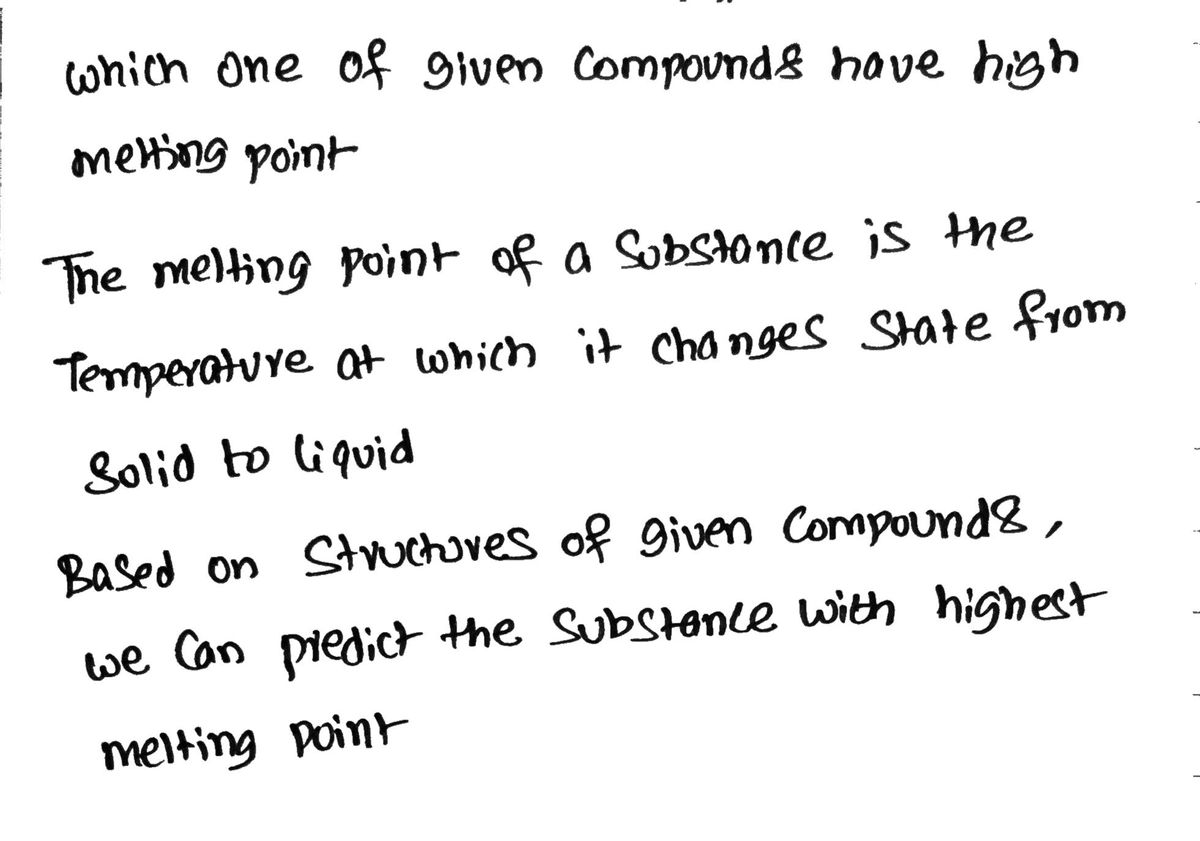 which one of given Compounds have high
melting point
The melting point of a Substance is the
Temperature at which it changes State from
Solid to liquid
Based on Structures of given Compounds,
we Can predict the Substance with highest
melting point